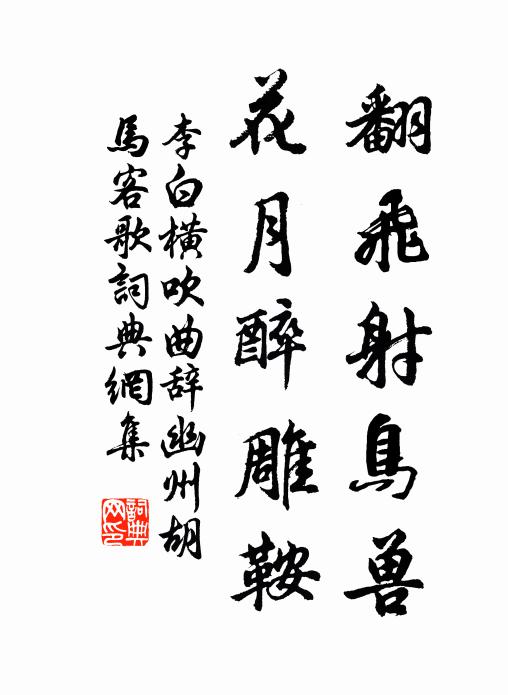 翻飛射鳥兽
花月醉雕鞍
李白橫吹曲辞幽州胡
馬客歌詞典網集
詞典
网印